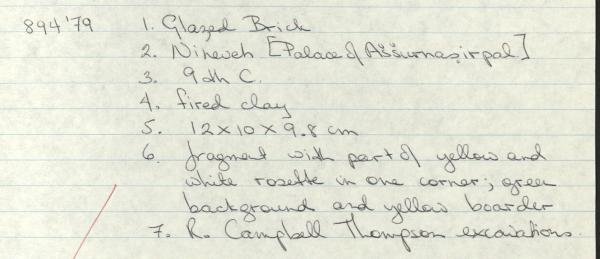 894'79 1. Glazed Brick
2. Nineveh [Palace of Aššurnaṣirpal]
3. 9th C.
4. fired clay
5. 12 x 10 x 9.8 cm
6. fragment with part of yellow and
white rosette in one corner; green
background and yellow boarder
7. R. Campbell Thompson excavations.